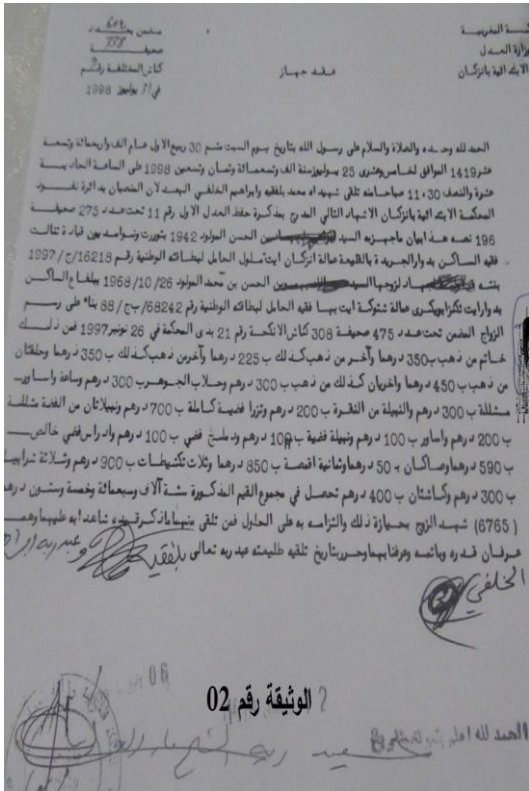 المغربية
وزارة العدل
الابتدائية بانزكان
عقد جهاز
مضمن بعدد 615
صحيفة 558
كناش المختلفة رقم
في 31 يوليوز 1998
الحمد لله وحده والصلاة والسلام على رسول الله بتاريخ يوم السبت متم 30 ربيع الاول عام الف واربعمائة وتسعة
عشر 1419 الموافق لخامس وعشرى 25 يوليوز سنة الف وتسعمائة وثمان وتسعين 1998 على الساعة الحادية
عشرة والنصف 30،11 صباحا منه تلقى شهيداه محمد بلفقيه وابراهيم الخلفي العدلان المنتصبان بدائرة نفوذ
المحكمة الابتدائية بانزكان الاشهاد التالي المدرج بمذكرة حفظ العدل الاول رقم 11 تحت عدد 275 صحيفة
196 نصه هذا بيان ما جهز به السيد الحسن المولود 1942 بتورت ونواسه بين قيادة تنالت
فقيه الساكن بدوار الجريدة بالقليعة عمالة انزكان ايت ملول الحامل لبطاقته الوطنية رقم 16218/ج/1997
بنته لزوجها السيد الحسن بن محمد المولود 1968/10/26 ببلفاع الساكن
بدوار ايت تكزا بويكرى عمالة شتوكة ايت بها فقيه الحامل لبطاقته الوطنية رقم 68242/ب ج/88 بناء على رسم
الزواج المضمن تحت عدد 475 صحيفة 308 كناش الانكحة رقم 21 بذى المحكمة في 26 نونبر 1997 فمن ذلك
خاتم من ذهب ب 350 درهما وآخر من ذهب كذلك ب 225 درهما وآخر من ذهب كذلك ب 350 درهما وحلقتان
من ذهب ب 450 درهما واخريان كذلك من ذهب ب 300 درهم وحلاب الجوهر ب 300 درهم وساعة واساور
مشللة ب 300 درهم والنبيلة من النقرة ب 200 درهم وتزرا فضية كاملة ب 700 درهم ونبيلاتان من الفضة مشللة
ب 200 درهم واساور ب 100 درهم ونبيلة فضية ب 100 درهم ودملج فضي ب 100 درهم وادراس فضي خالص
ب 590 درهما وصاكان ب 50 درهما وثمانية اقمصة ب 850 درهما وثلاث تكشيطات ب 900 درهم وثلاثة شرابيا
ب 300 درهم وكاشتان ب 400 درهم تحصل في مجموع القيم المذكورة ستة آلاف وسبعمائة وخمسة وستون درهم
(6765) شهد الزوج بحيازة ذلك والتزامه به على الحلول فمن تلقى منهما ما ذكر قيده شاهدا به عليهما وهما
عرفان قدره وباتمه وعرفا بهما وحرر بتاريخ تلقيه طليعته عبد ربه تعالى بلفقيه وعبد ربه
الخلفي
الوثيقة رقم 02
الحمد لله اعلم